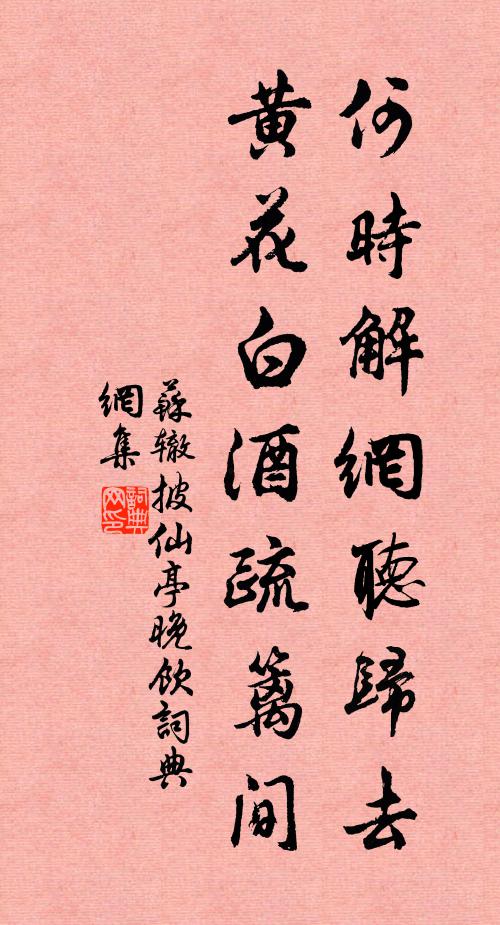 何時解網聽歸去
黄花白酒疏籬間
蘇辙披仙亭晚飲詞典
網集
詞典
网印